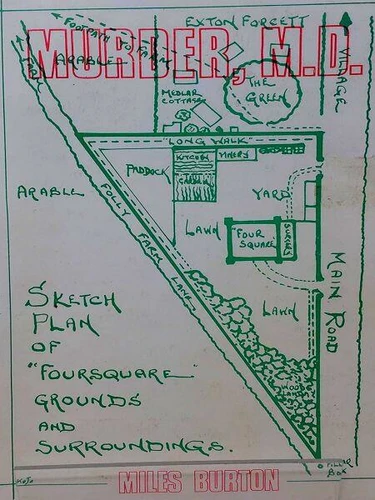 EXTON FORCETT
FOOTPATH TO FARM
MURDER, M.D.
ARABLE
THE
GREEN
VILLAGE
MEDLAR
COTTAGE
"LONG WALK"
KITCHEN
GARDEN
PADDOCK
ARABLE
YARD
FOLLY FARM LANE
LAWN
"FOUR
SQUARE"
MAIN ROAD
LAWN
SKETCH
PLAN
OF
"FOURSQUARE"
GROUNDS
AND
SURROUNDINGS.
WOOD
LAND
PILLAR
BOX
MILES BURTON